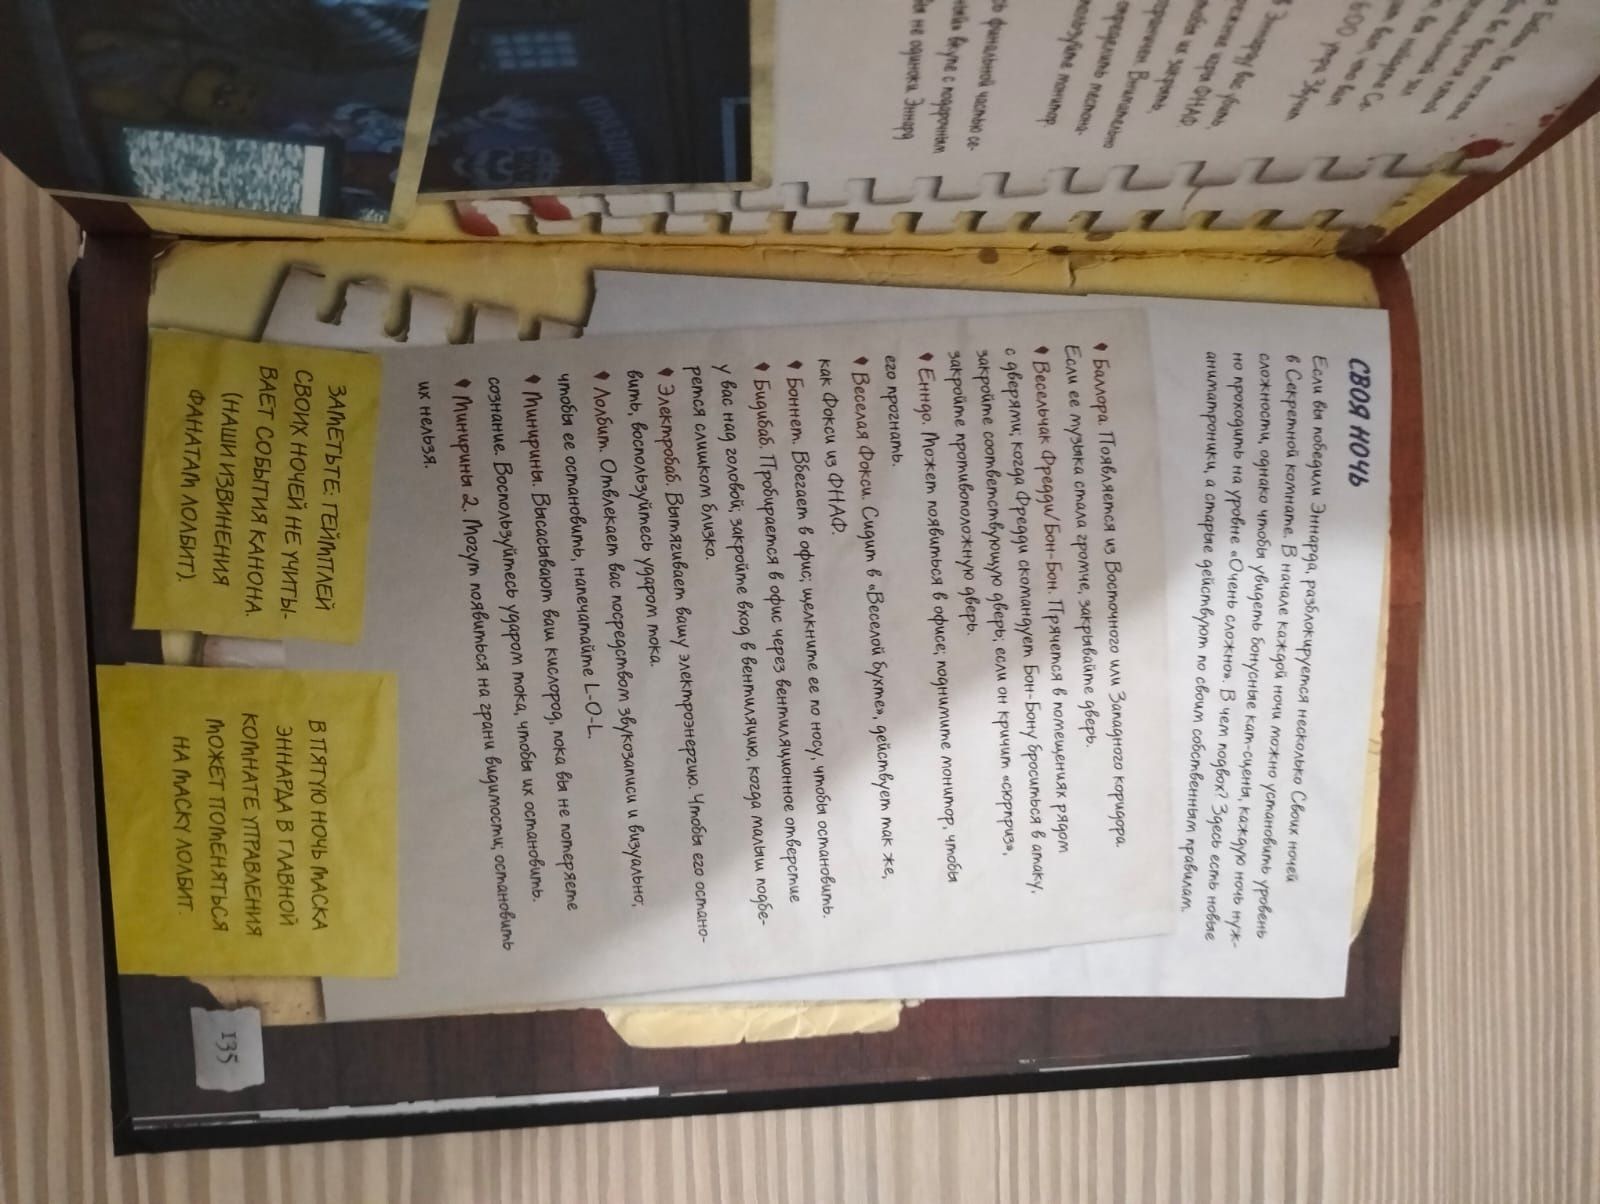 СВОЯ НОЧЬ
Если вы победили Эннарда, разблокируется несколько Своих ночей
в Секретной комнате. В начале каждой ночи можно установить уровень
сложности, однако чтобы увидеть бонусные кат-сцены, каждую ночь нуж-
но проходить на уровне «Очень сложно». В чем подвох? Здесь есть новые
аниматроники, а старые действуют по своим собственным правилам.
♦ Баллора. Появляется из Восточного или Западного коридора.
Если ее музыка стала громче, закрывайте дверь.
♦ Весельчак Фредди/Бон-Бон. Прячется в помещениях рядом
с дверями; когда Фредди скомандует Бон-Бону броситься в атаку,
закройте соответствующую дверь; если он кричит «сюрприз»,
закройте противоположную дверь.
♦ Енндо. Может появиться в офисе; поднимите монитор, чтобы
его прогнать.
♦ Веселая Фокси. Сидит в «Веселой бухте», действует так же,
как Фокси из ФНАФ.
♦ Боннет. Вбегает в офис; щелкните ее по носу, чтобы остановить.
♦ Бидибаб. Пробирается в офис через вентиляционное отверстие
у вас над головой; закройте вход в вентиляцию, когда малыш подбе-
рется слишком близко.
♦ Электробаб. Вытягивает вашу электроэнергию. Чтобы его остано-
вить, воспользуйтесь ударом тока.
♦ Лолбит. Отвлекает вас посредством звукозаписи и визуально;
чтобы ее остановить, напечатайте L-O-L.
♦ Минирины. Высасывают ваш кислород, пока вы не потеряете
сознание. Воспользуйтесь ударом тока, чтобы их остановить.
♦ Минирины 2. Могут появиться на грани видимости; остановить
их нельзя.
ЗАМЕТЬТЕ: ГЕЙМПЛЕЙ
СВОИХ НОЧЕЙ НЕ УЧИТЫ-
ВАЕТ СОБЫТИЯ КАНОНА.
(НАШИ ИЗВИНЕНИЯ
ФАНАТАМ ЛОЛБИТ).
В ПЯТУЮ НОЧЬ МАСКА
ЭННАРДА В ГЛАВНОЙ
КОМНАТЕ УПРАВЛЕНИЯ
МОЖЕТ ПОМЕНЯТЬСЯ
НА МАСКУ ЛОЛБИТ.
135